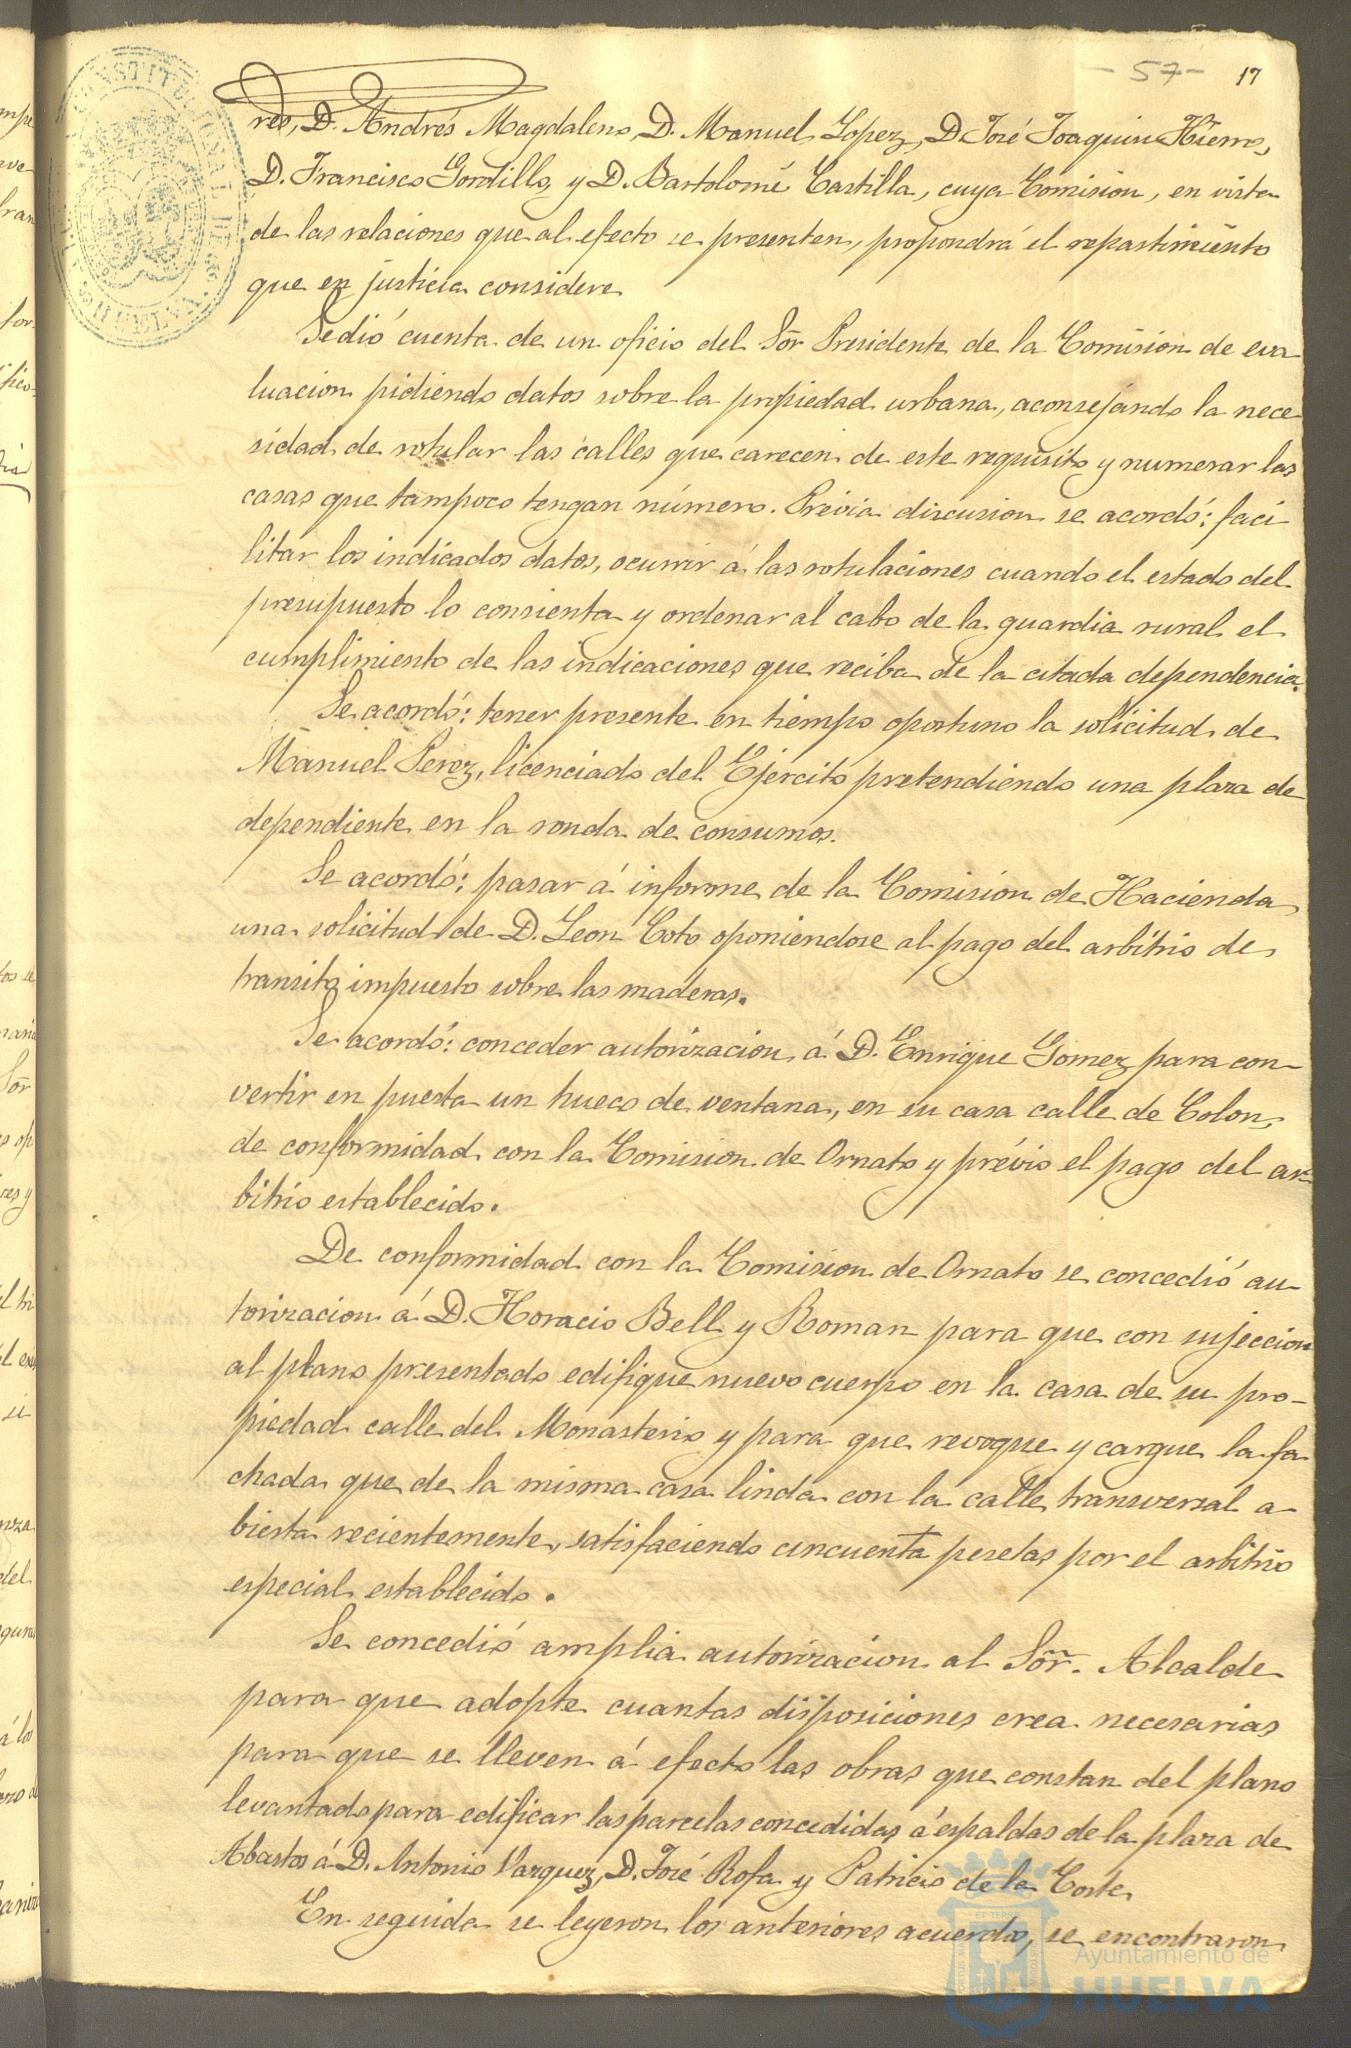 - 57 - 17
res, D. Andrés Magdaleno, D. Manuel Lopez, D. José Joaquin Hierro,
D. Francisco Gordillo, y D. Bartolomé Castilla, cuya Comision, en vista
de las relaciones que al efecto se presenten, propondrá el repartimiento
que en justicia considere
Se dió cuenta de un oficio del Sõr Presidente de la Comision de eva
luacion pidiendo datos sobre la propiedad urbana, aconsejando la nece
sidad de rotular las calles que carecen de este requisito y numerar las
casas que tampoco tengan número. Prévia discusion se acordó: faci
litar los indicados datos, ocurrir á las rotulaciones cuando el estado del
presupuesto lo consienta y ordenar al cabo de la guardia rural el
cumplimiento de las indicaciones que reciba de la citada dependencia.
Se acordó: tener presente en tiempo oportuno la solicitud de
Manuel Perez, licenciado del Ejército pretendiendo una plaza de
dependiente en la ronda de consumos.
Se acordó: pasar á informe de la Comision de Hacienda
una solicitud de D. Leon Coto oponiendose al pago del arbitrio de
transito impuesto sobre las maderas.
Se acordó: conceder autorizacion á D. Enrique Gomez para con-
vertir en puerta un hueco de ventana, en su casa calle de Colon,
de conformidad con la Comision de Ornato y prévio el pago del ar-
bitrio establecido.
De conformidad con la Comision de Ornato se concedió au-
torizacion á D. Horacio Bell y Roman para que con sujeccion
al plano presentado edifique nuevo cuerpo en la casa de su pro-
piedad calle del Monasterio y para que revoque y cargue la fa
chada que de la misma casa linda con la calle transversal a-
bierta recientemente, satisfaciendo cincuenta pesetas por el arbitrio
especial establecido.
Se concedió amplia autorizacion al Sõr. Alcalde
para que adopte cuantas disposiciones crea necesarias
para que se lleven á efecto las obras que constan del plano
levantado para edificar las parcelas concedidas á espaldas de la plaza de
Abastos á D. Antonio Vazquez, D. José Rofa y Patricio de la Corte
En seguida se leyeron los anteriores acuerdos, se encontraron
Ayuntamiento de
HUELVA